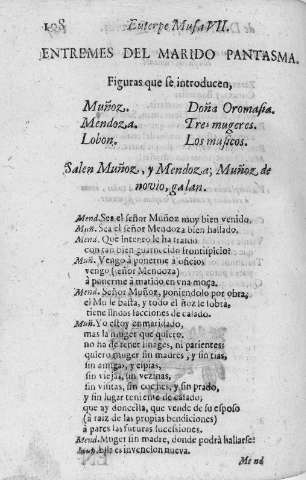 108 Euterpe Musa VII.
ENTREMES DEL MARIDO PANTASMA.
Figuras que se introducen,
Muñoz. Doña Oromasia.
Mendoza. Tres mugeres.
Lobon. Los musicos.
Salen Muñoz, y Mendoza; Muñoz de
novio, galan.
Mend. Sea el señor Muñoz muy bien venido.
Muñ. Sea el señor Mendoza bien hallado.
Mend. Que intento le ha traido
con tan bien guarnecido frontispicio?
Muñ. Vengo à ponerme à oficio;
vengo (señor Mendoza)
à ponerme à marido en una moça.
Mend. Señor Muñoz, poniendolo por obra,
el Mu le basta, y todo el ñoz le sobra,
tiene lindos facciones de casado.
Muñ. Yo estoy enmaridado,
mas la muger que quiero,
no ha de tener linages, ni parientes:
quiero muger sin madres, y sin tias,
sin amigas, y espias,
sin viejas, sin vezinas,
sin visitas, sin coches, y sin prado,
y sin lugar teniente de casado;
que ay doncella, que vende de su esposo
(à raiz de las propias bendiciones)
à pares las futuras sucessiones.
Mend. Muger sin madre, donde podrà hallarse?
Muñ. Essa es invencion nueva.
Mend